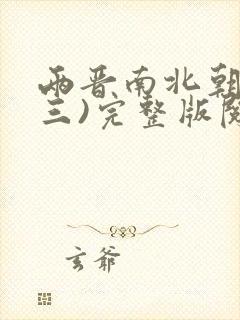 两晋南北朝
三)完整版阅
玄爷